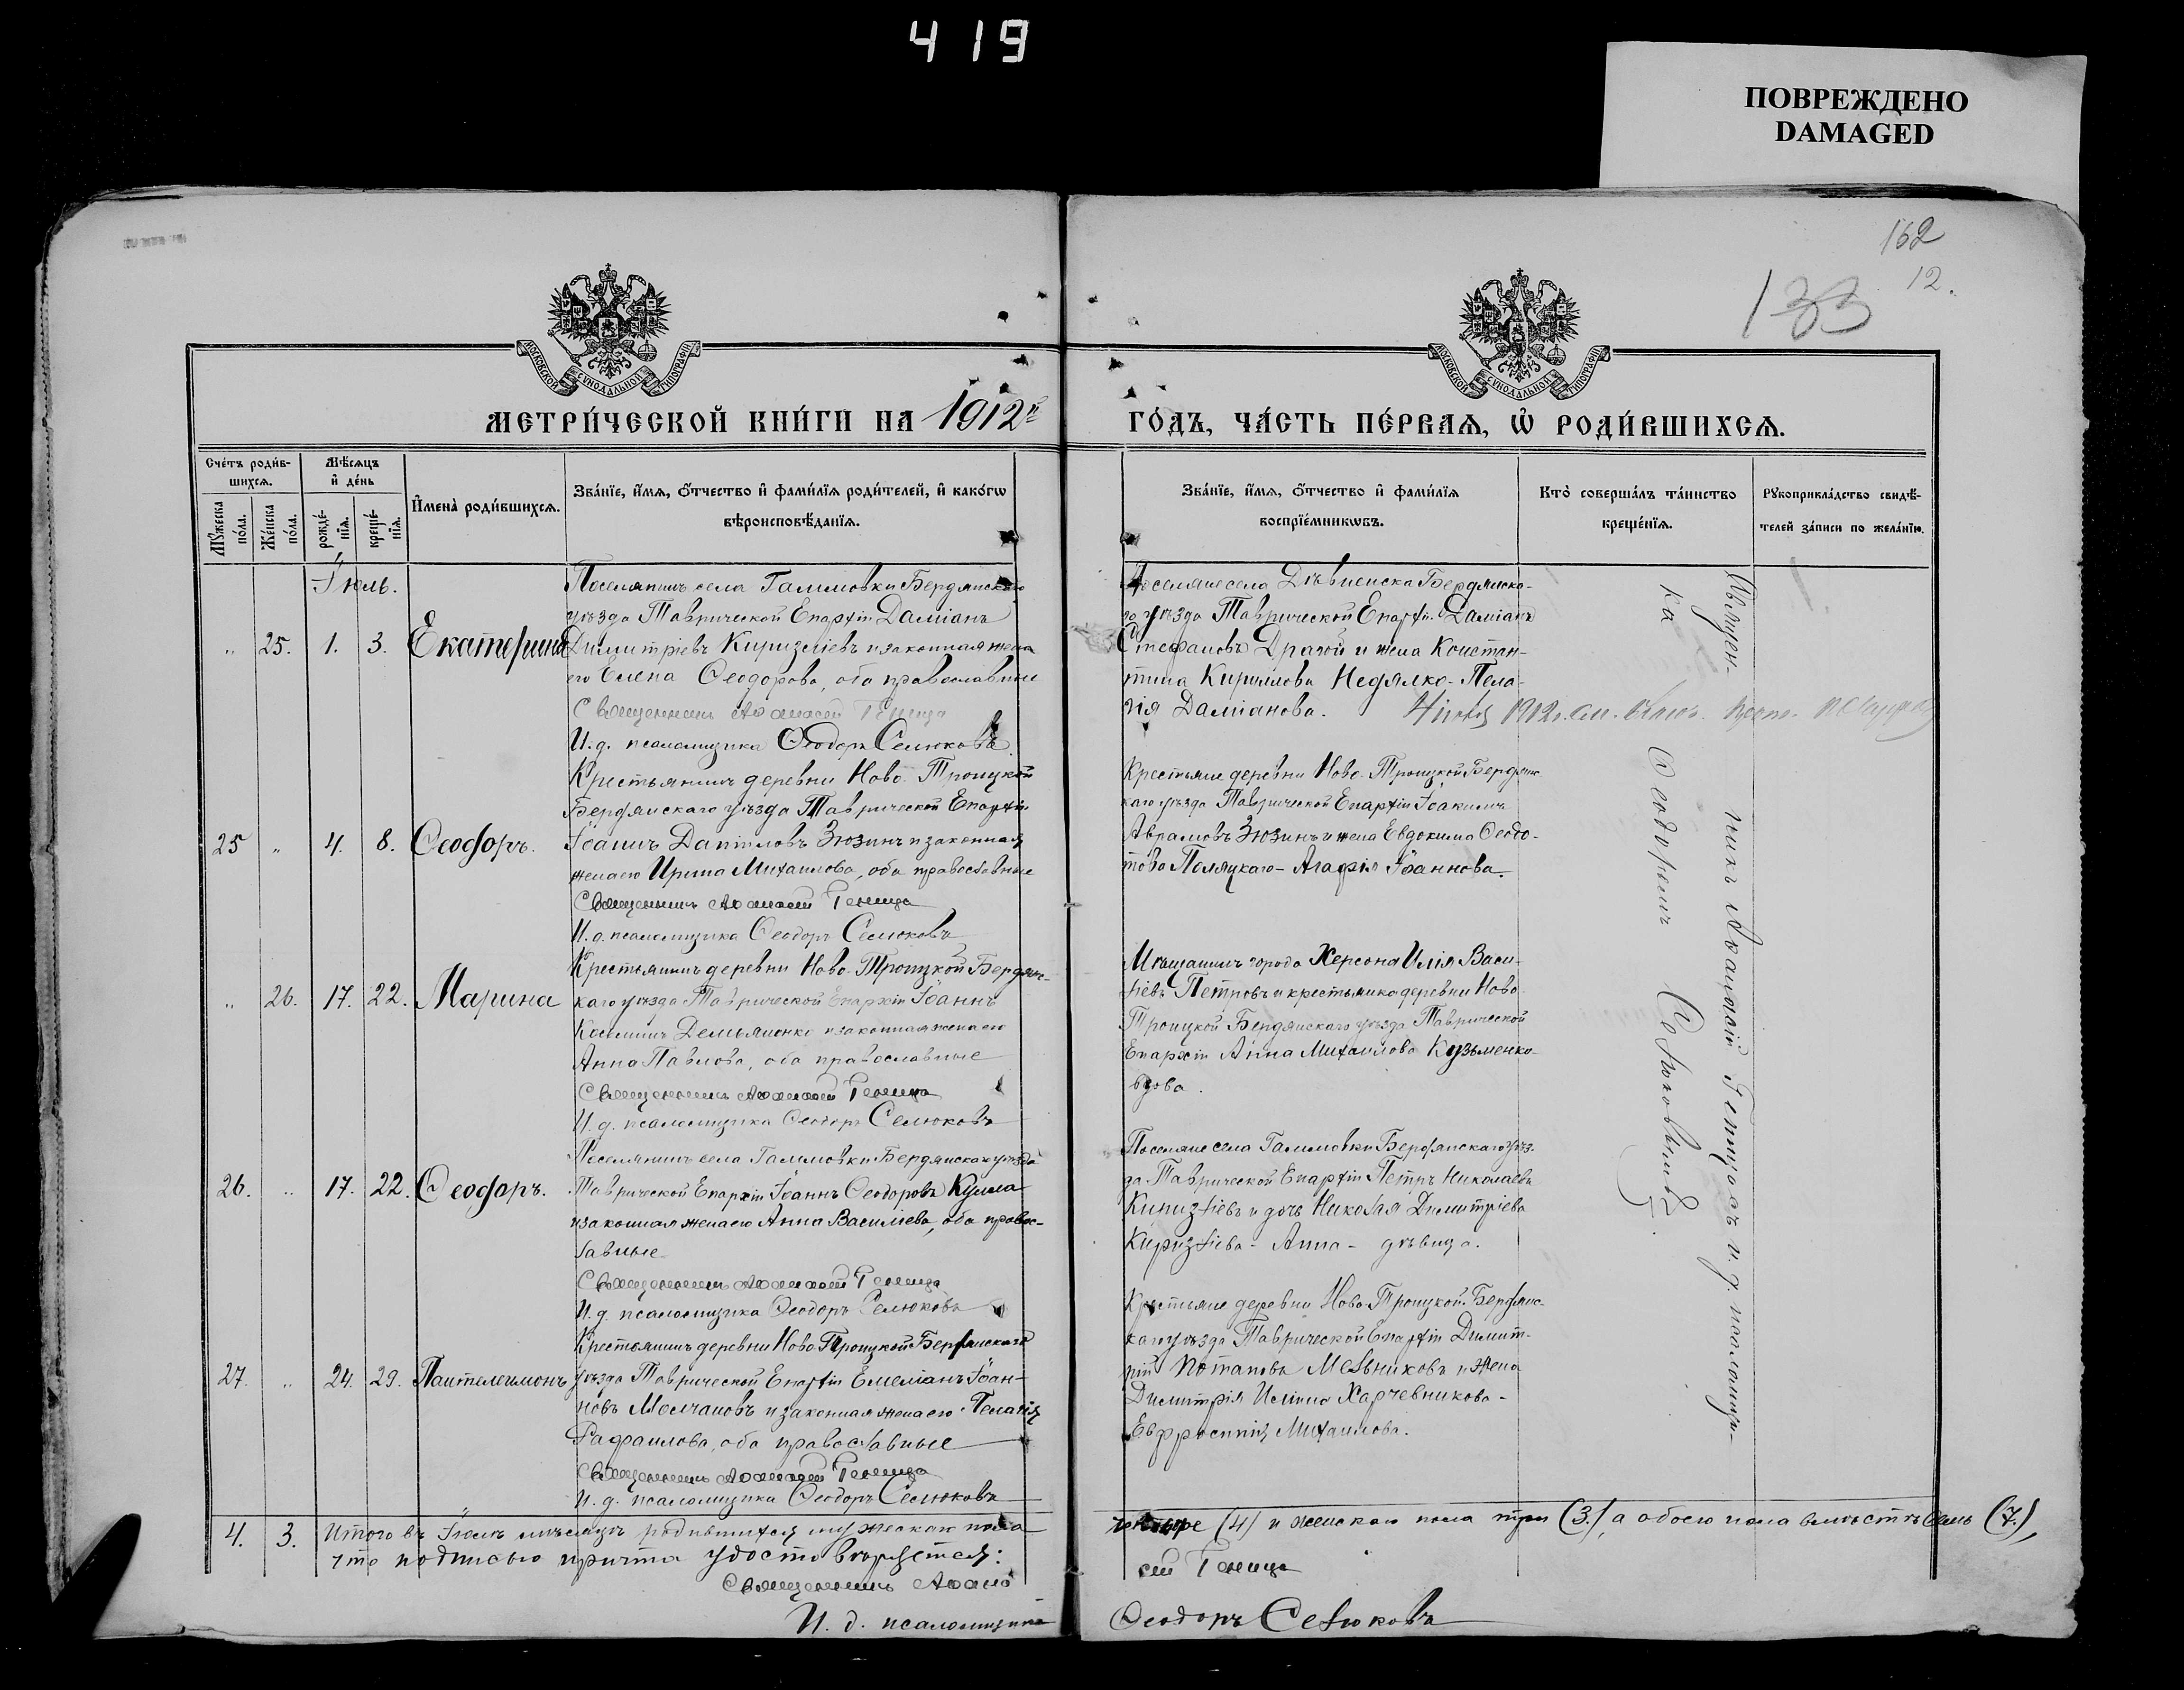 419
ПОВРЕЖДЕНО
DAMAGED
162
12.
133
МОСКОВСКОЙ СУНОДАЛЬНОЙ ТИПОГРАФІИ
МОСКОВСКОЙ СУНОДАЛЬНОЙ ТИПОГРАФІИ
МЕТРИ́ЧЕСКОЙ КНИ́ГИ НА 1912й
ГО́ДЪ, ЧА́СТЬ ПЕ́РВАЯ, Ѡ҆ РОДИ́ВШИХСЯ.
Сче́тъ роди́в-
шихся.
Мѣ́сяцъ
и҆ де́нь
Му́жеска по́ла.
Же́нска по́ла.
рожде́-нїя.
креще́-нїя.
И҆мена̀ роди́вшихся.
Зва́нїе, и҆́мя, ѻ҆́тчество и҆ фами́лїя роди́телей, и҆ како́гѡ
вѣроисповѣ́данїя.
Зва́нїе, и҆́мя, ѻ҆́тчество и҆ фами́лїя
воспрїе́мникѡвъ.
Кто̀ соверша́лъ та́инство
креще́нїя.
Рꙋкоприкла́дство свидѣ́-
телей за́писи по жела́нїю.
Іюль.
„ 25. 1. 3. Екатерина
Поселянинъ села Гаммовки Бердянскаго
уѣзда Таврической Епархіи Даміанъ
Димитріевъ Киризліевъ и законная жена
его Елена Ѳеодорова, оба православные
Священникъ Аѳанасій Геница
И. д. псаломщика Ѳеодоръ Селюковъ
Поселяне села Дѣвненска Бердянска-
го уѣзда Таврической Епархіи Даміанъ
Стефановъ Драгой и жена Констан-
тина Кириллова Недялко - Пела-
гія Даміанова.
1912 г.
25 „ 4. 8. Ѳеодоръ.
Крестьянинъ деревни Ново-Троицкой
Бердянскаго уѣзда Таврической Епархіи
Іоаннъ Даніиловъ Зюзинъ и законная
жена его Ирина Михаилова, оба православные
Священникъ Аѳанасій Геница
И. д. псаломщика Ѳеодоръ Селюковъ
Крестьяне деревни Ново-Троицкой Бердянс-
каго уѣзда Таврической Епархіи Іоакимъ
Аврамовъ Зюзинъ и жена Евдокима Ѳеодо-
това Поляцкаго - Агафія Іоаннова.
„ 26. 17. 22. Марина
Крестьянинъ деревни Ново-Троицкой Бердянс-
каго уѣзда Таврической Епархіи Іоаннъ
Космина Демьяненко и законная жена его
Анна Павлова, оба православные
Священникъ Аѳанасій Геница
И. д. псаломщика Ѳеодоръ Селюковъ
Мѣщанинъ города Херсона Илія Васи-
ліевъ Петровъ и крестьянка деревни Ново-
Троицкой Бердянскаго уѣзда Таврической
Епархіи Анна Михаилова Кузьменко-
ва.
26. „ 17. 22. Ѳеодоръ.
Поселянинъ села Гаммовки Бердянскаго уѣзда
Таврической Епархіи Іоаннъ Ѳеодоровъ Кулма
и законная жена его Анна Василіева, оба правос-
лавные
Священникъ Аѳанасій Геница
И. д. псаломщика Ѳеодоръ Селюковъ
Поселяне села Гаммовки Бердянскаго уѣз-
да Таврической Епархіи Петръ Николаевъ
Киризліевъ и дочь Николая Димитріева
Киризліева - Анна - дѣвица.
27. „ 24. 29. Пантелеимонъ
Крестьянинъ деревни Ново-Троицкой Бердянскаго
уѣзда Таврической Епархіи Емеліанъ Іоан-
новъ Молчановъ и законная жена его Пелагія
Рафаилова, оба православные
Священникъ Аѳанасій Геница
И. д. псаломщика Ѳеодоръ Селюковъ
Крестьяне деревни Ново-Троицкой Бердянс-
каго уѣзда Таврической Епархіи Димит-
рій Потаповъ Мельниковъ и жена
Димитрія Иліина Харчевникова -
Евфросинія Михаилова.
Священ-
никъ Аѳанасій Геница съ и. д. псаломщи-
ка
Ѳеодоромъ Селюковымъ.
4. 3. Итого въ Іюлѣ мѣсяцѣ родившихся мужескаго пола четыре (4) и женскаго пола три (3.), а обоего пола вмѣстѣ семь (7.),
что подписью причта удостовѣряется:
Священникъ Аѳанасій Геница
И. д. псаломщика Ѳеодоръ Селюковъ